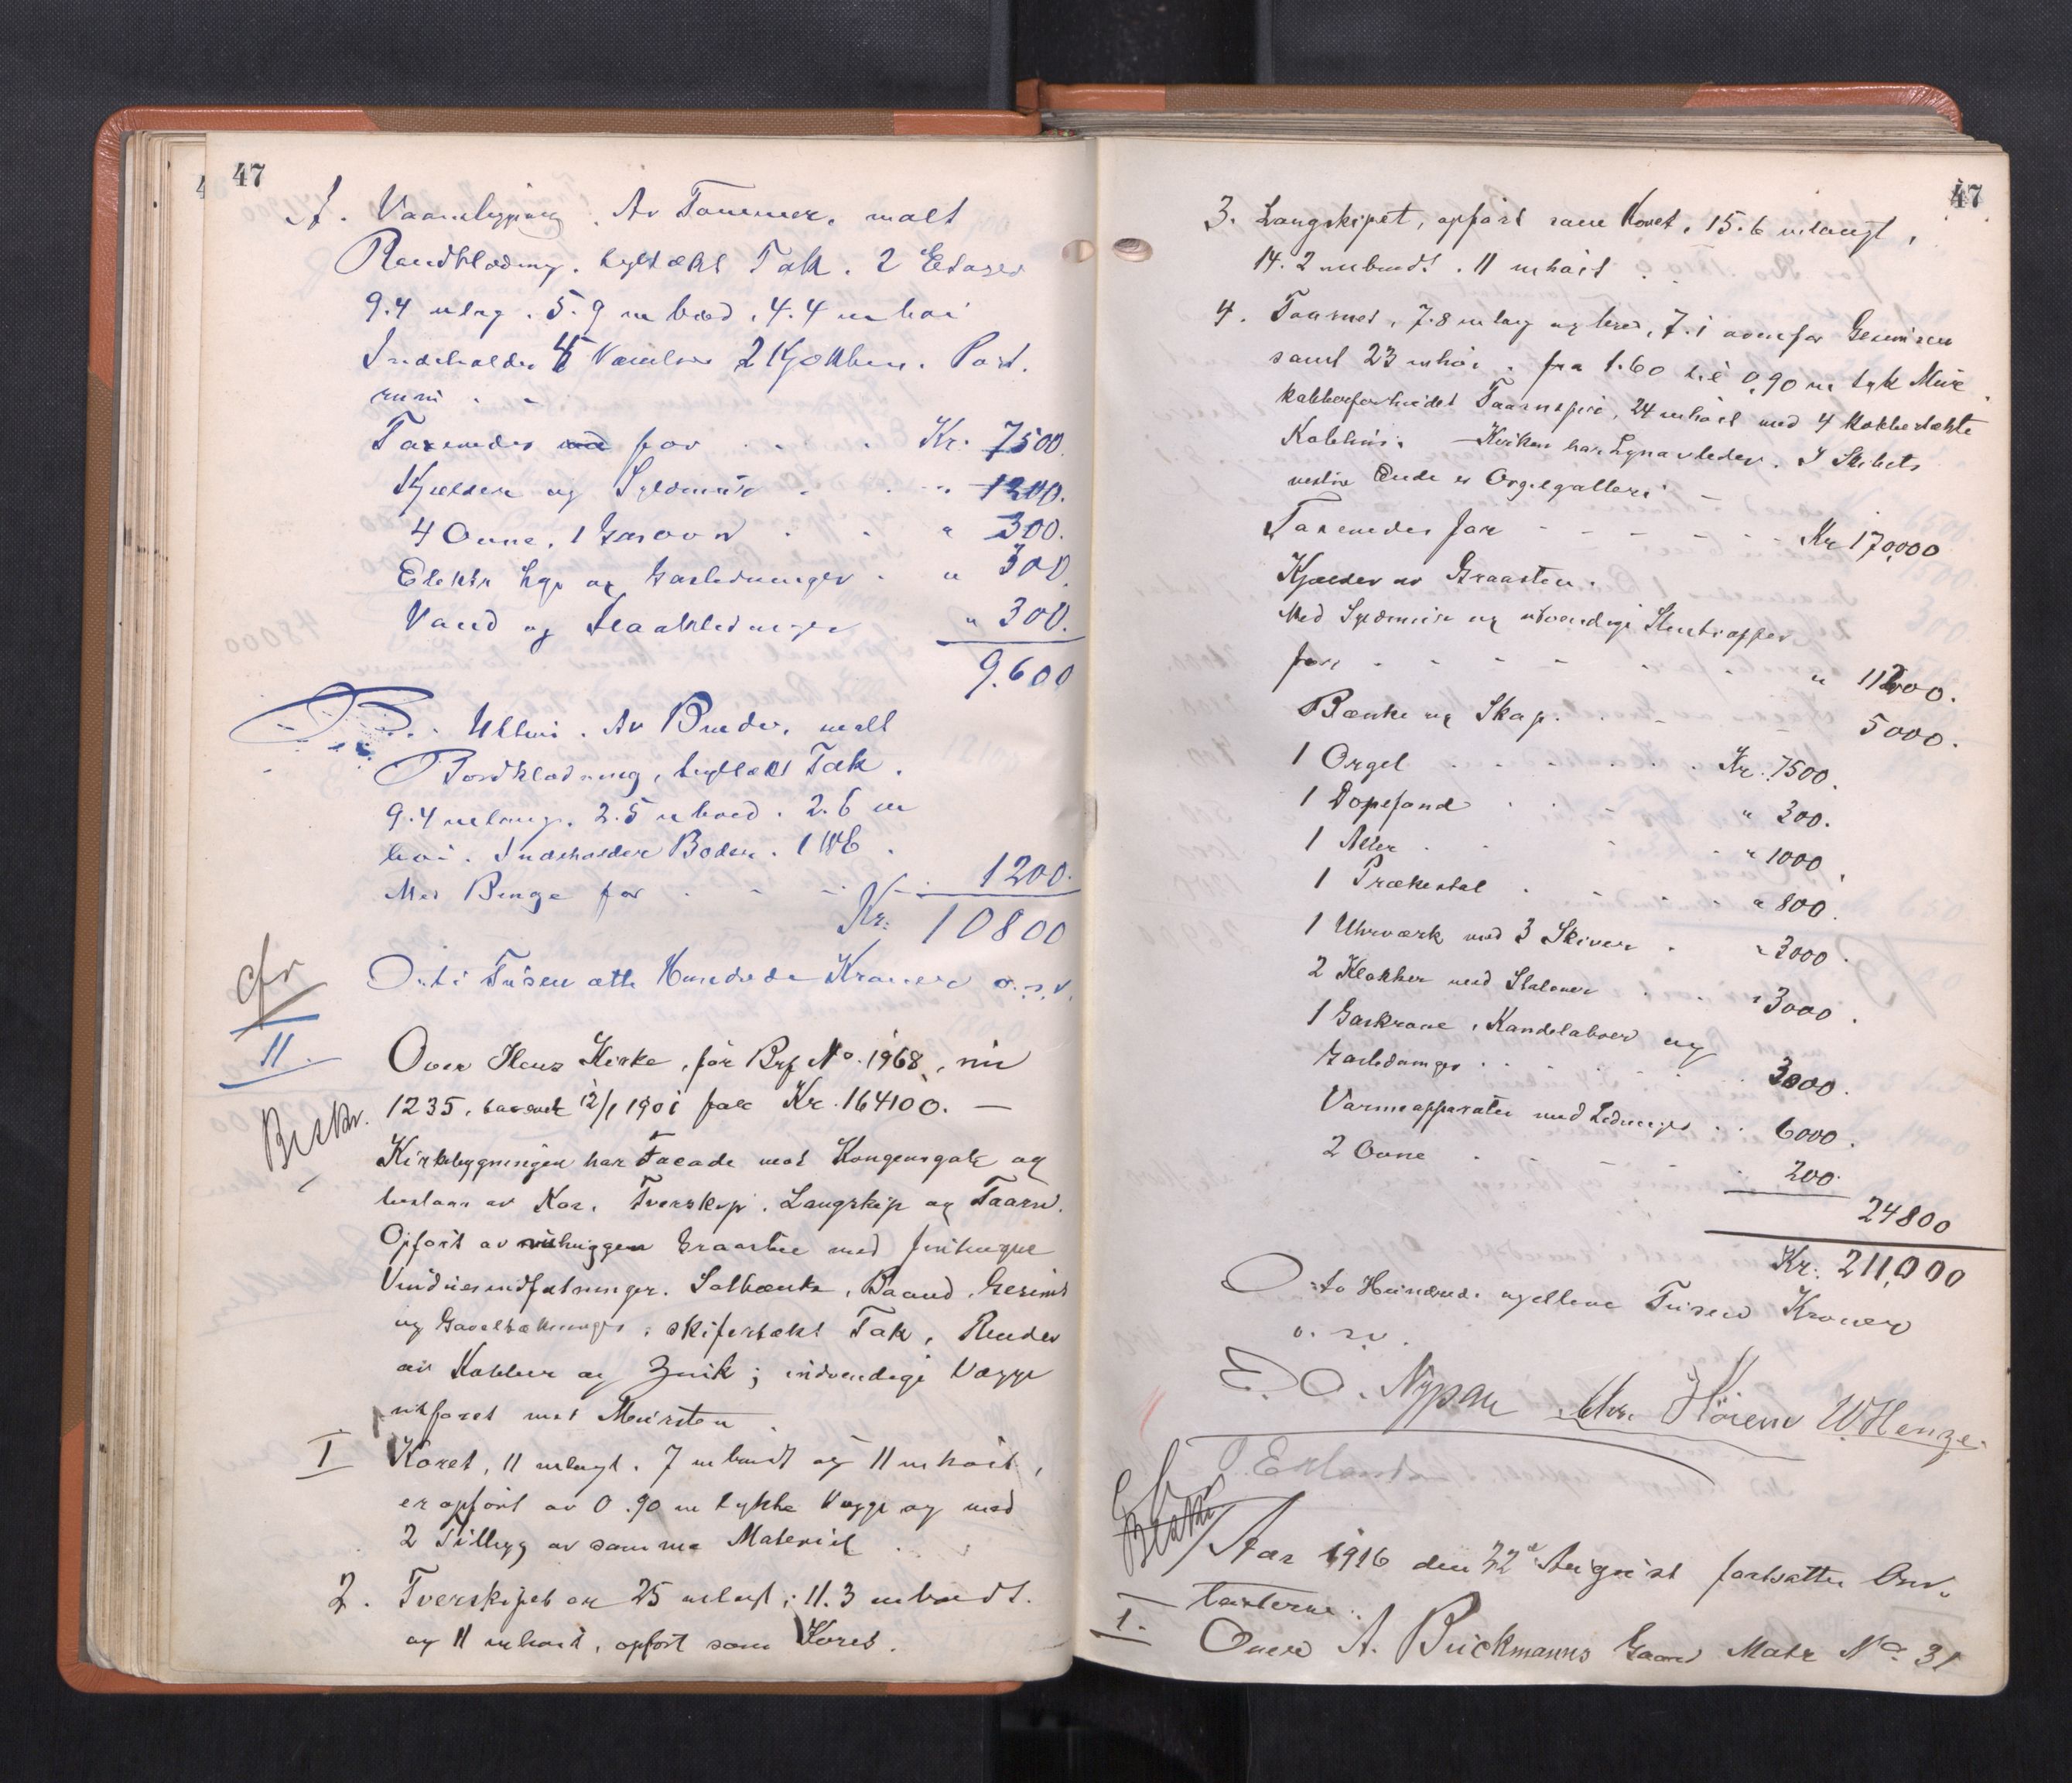 47
A. Vaaningshus. Av Tømmer, malt
Bordklædning. tegltækt Tak. 2 Etager
9.4 m lng. 5.9 m bred. 4.4 m høi
Indeholder 4 Værelser 2 Kjøkken.
rum
Taxeredes for Kr. 7500.
Kjælder og Syldmur " 1200.
4 Ovne, 1 Gasovn " 300.
Elektr Lys og Gasledninger " 300.
Vand og Kloakledninger " 300.
9.600
B. Uthus. Av Binder, malt
Bordklædning, tegltækt Tak.
9.4 m lang. 2.5 m bred. 2.6 m
høi. Indeholder Boder. 1 WC.
Med Binge for 1200.
Kr. 10800
Er ti Tusen otte Hundrede Kroner o.s.v.
cfr
11.
Over Ilens Kirke, før Brf No. 1968, nu
1235, taxeret 12/1 1901 for Kr. 164100. —
Beskr.
Kirkebygningen har Facade mot Kongensgate og
bestaar av Kor, Tverskip, Langskip og Taarn.
Opført av raahuggen Graasten med finhugne
Vinduesindfatninger. Solbænke, Baand, Gesims
og Gaveltækninger, skifertækt Tak, Render
av Kobber og Zink; indvendige Vægge
utforet med Mursten.
I Koret, 11 m langt. 7 m bredt og 11 m høit,
er opført av 0.90 m tykke Vægge og med
2 Tilbyg av samme Materiel
2. Tverskipet er 25 m langt, 11.3 m bredt.
og 11 m høit, opført som Koret.
47
3. Langskipet, opført som Koret, 15.6 m langt,
14.2 m bredt. 11 m høit
4. Taarnet, 7.8 m lang og bred, 7.1 ovenfor Gesimsen
samt 23 m høi. fra 1.60 til 0.90 m tyk Mur
kobberforhudet Taarnspir, 24 m høit med 4 kobbertækte
Kirken har Lynavleder. I Skibets
vestre Ende er Orgelgalleri
Taxeredes for Kr 170000
Kjælder av Graasten.
Med Syldmur og utvendige Stentrapper
for " 11200.
Bænke og Skap. 5000.
1 Orgel Kr. 7500.
1 Døpefond " 300.
1 Alter " 1000.
1 Prækestol " 800.
1 Uhrværk med 3 Skiver " 3000.
2 Klokker med Stolover " 3000.
1 Gaskrone, Kandelabrer og
Gasledninger 3000.
Varmeapparater med Ledninger 6000.
2 Ovne 200.
24800
Kr. 211,000
Er to Hundrede og elleve Tusen Kroner
o.s.v.
E. O. Nypan Chr. Hørem W. Henze.
Beskr
Aar 1916 den 22de August fortsatte Om-
taxterne.
1. Over A. Buckmanns Gaard Matr No. 31